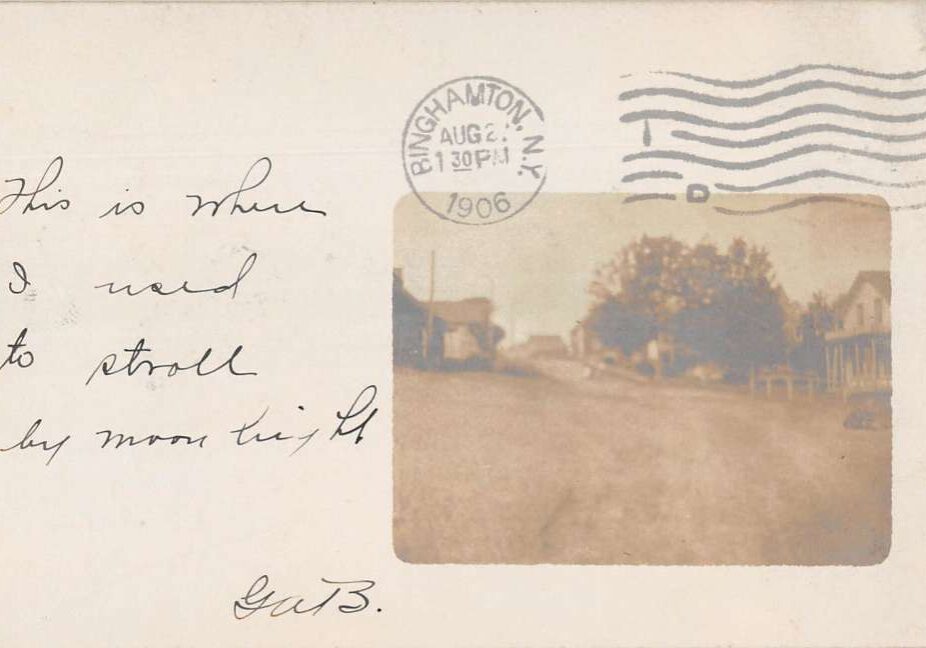 This is where
I used
to stroll
by moon light
BINGHAMTON, N.Y.
AUG 2
1 30 PM
1906
D